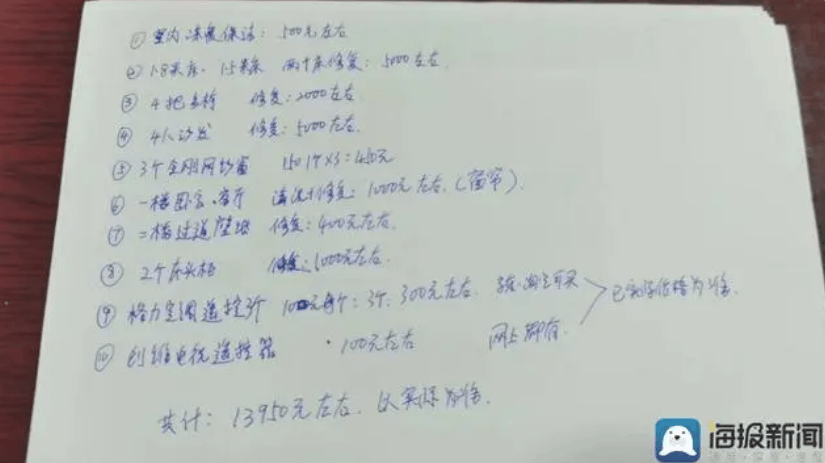 ① 室内深度保洁：500元左右
② 1.8米床、1.5米床 两个床修复：5000左右
③ 4把多椅 修复：2000左右
④ 4人沙发 修复：5000左右
⑤ 3个金刚网纱窗 150 1个×3：450元
⑥ 一楼 客厅 清洗+修复：1000元左右。（窗帘）
⑦ 二楼过道壁 修复：400元左右。
⑧ 2个床头柜 修复：1000元左右。
⑨ 格力空调遥控3个 100元每个：3个：300元左右
⑩ 创维电视遥控器 100元左右
网上即有 以实际价格为准
共计：13950元左右、以实际为准。
海报新闻